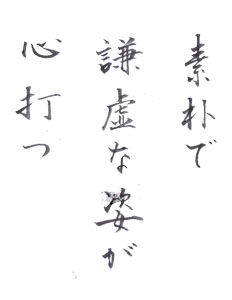 素朴で
謙虚な姿が
心打つ